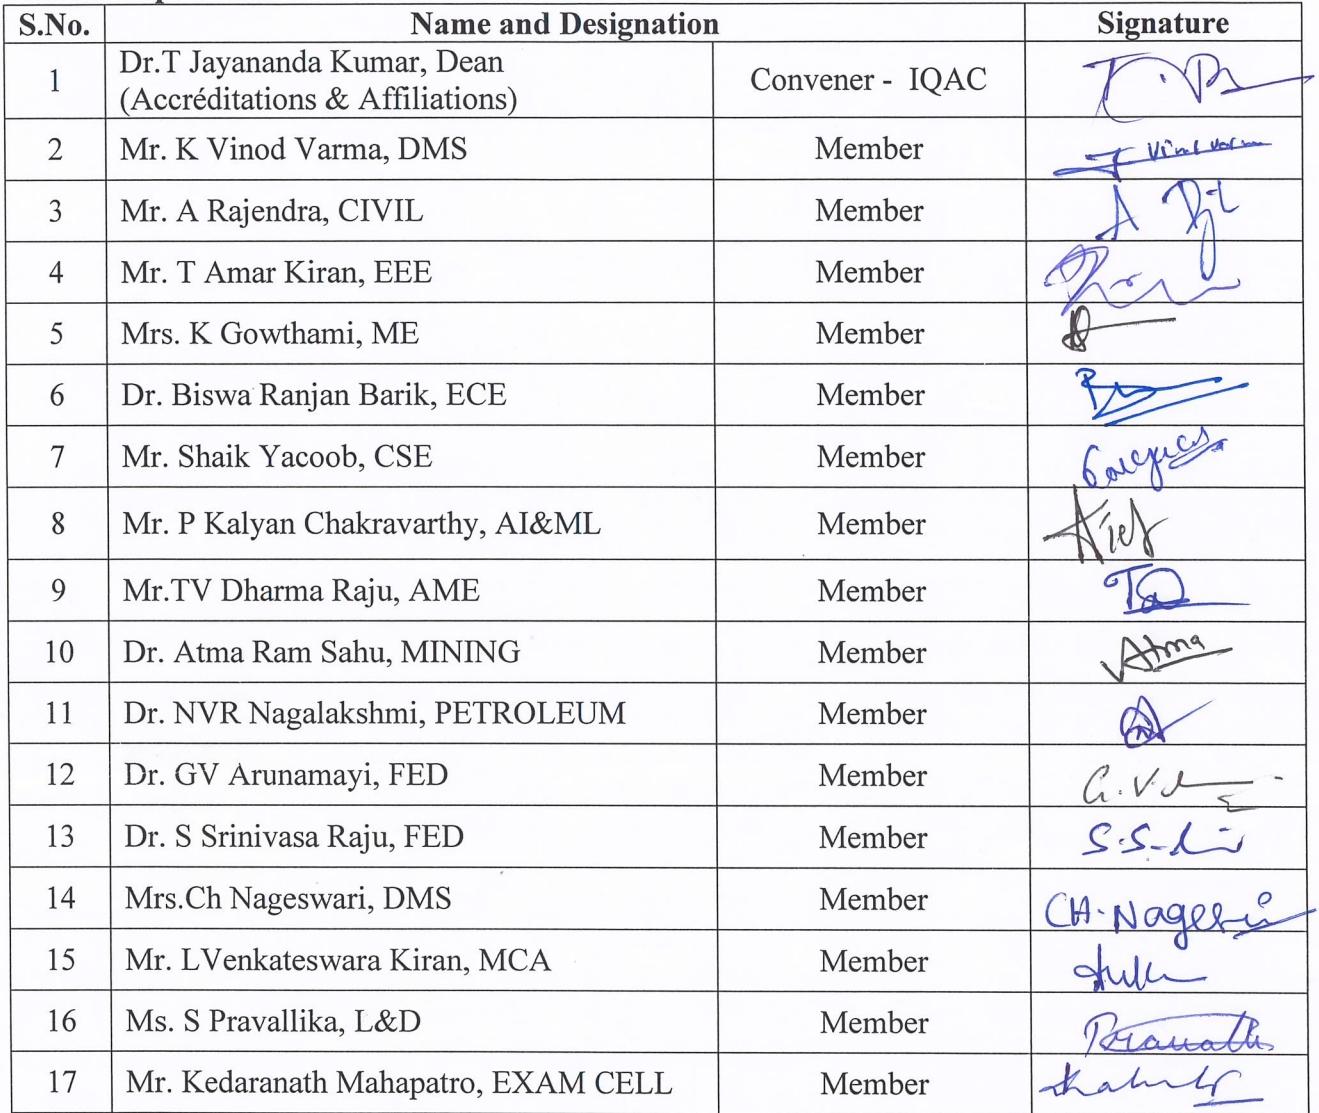 S.No. Name and Designation Signature
1 Dr.T Jayananda Kumar, Dean
(Accréditations & Affiliations) Convener - IQAC
2 Mr. K Vinod Varma, DMS Member Vinod varma
3 Mr. A Rajendra, CIVIL Member
4 Mr. T Amar Kiran, EEE Member
5 Mrs. K Gowthami, ME Member
6 Dr. Biswa Ranjan Barik, ECE Member
7 Mr. Shaik Yacoob, CSE Member
8 Mr. P Kalyan Chakravarthy, AI&ML Member
9 Mr.TV Dharma Raju, AME Member
10 Dr. Atma Ram Sahu, MINING Member Atma
11 Dr. NVR Nagalakshmi, PETROLEUM Member
12 Dr. GV Arunamayi, FED Member
13 Dr. S Srinivasa Raju, FED Member
14 Mrs.Ch Nageswari, DMS Member
15 Mr. LVenkateswara Kiran, MCA Member
16 Ms. S Pravallika, L&D Member
17 Mr. Kedaranath Mahapatro, EXAM CELL Member